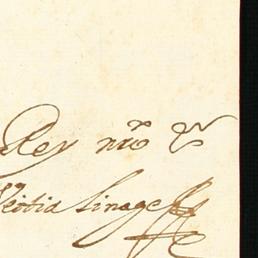 Rey nro
Veitia Linage